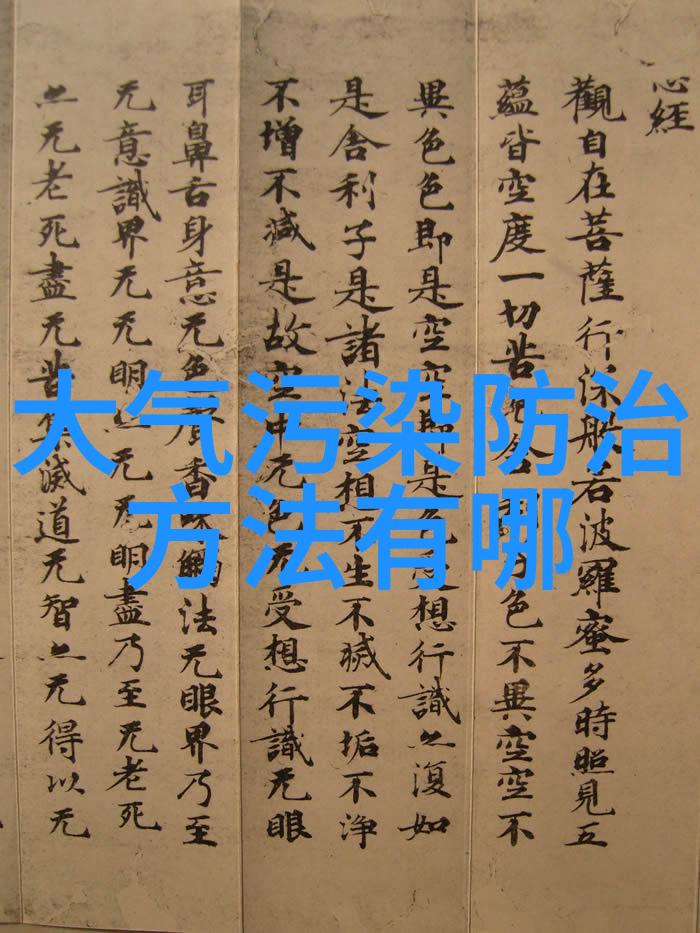 大气污染防治
方法有哪
心經
觀自在菩薩行深般若波羅蜜多時照見五
蘊皆空度一切苦厄舍色不異空空不
異色色即是空空即是色受想行識亦復如
是舍利子是諸法空相不生不滅不垢不淨
不增不減是故空中无色无受想行識无眼
耳鼻舌身意无色聲香味觸法无眼界乃至
无意識界无无明亦无无明盡乃至无老死
亦无老死盡无苦集滅道无智亦无得以无